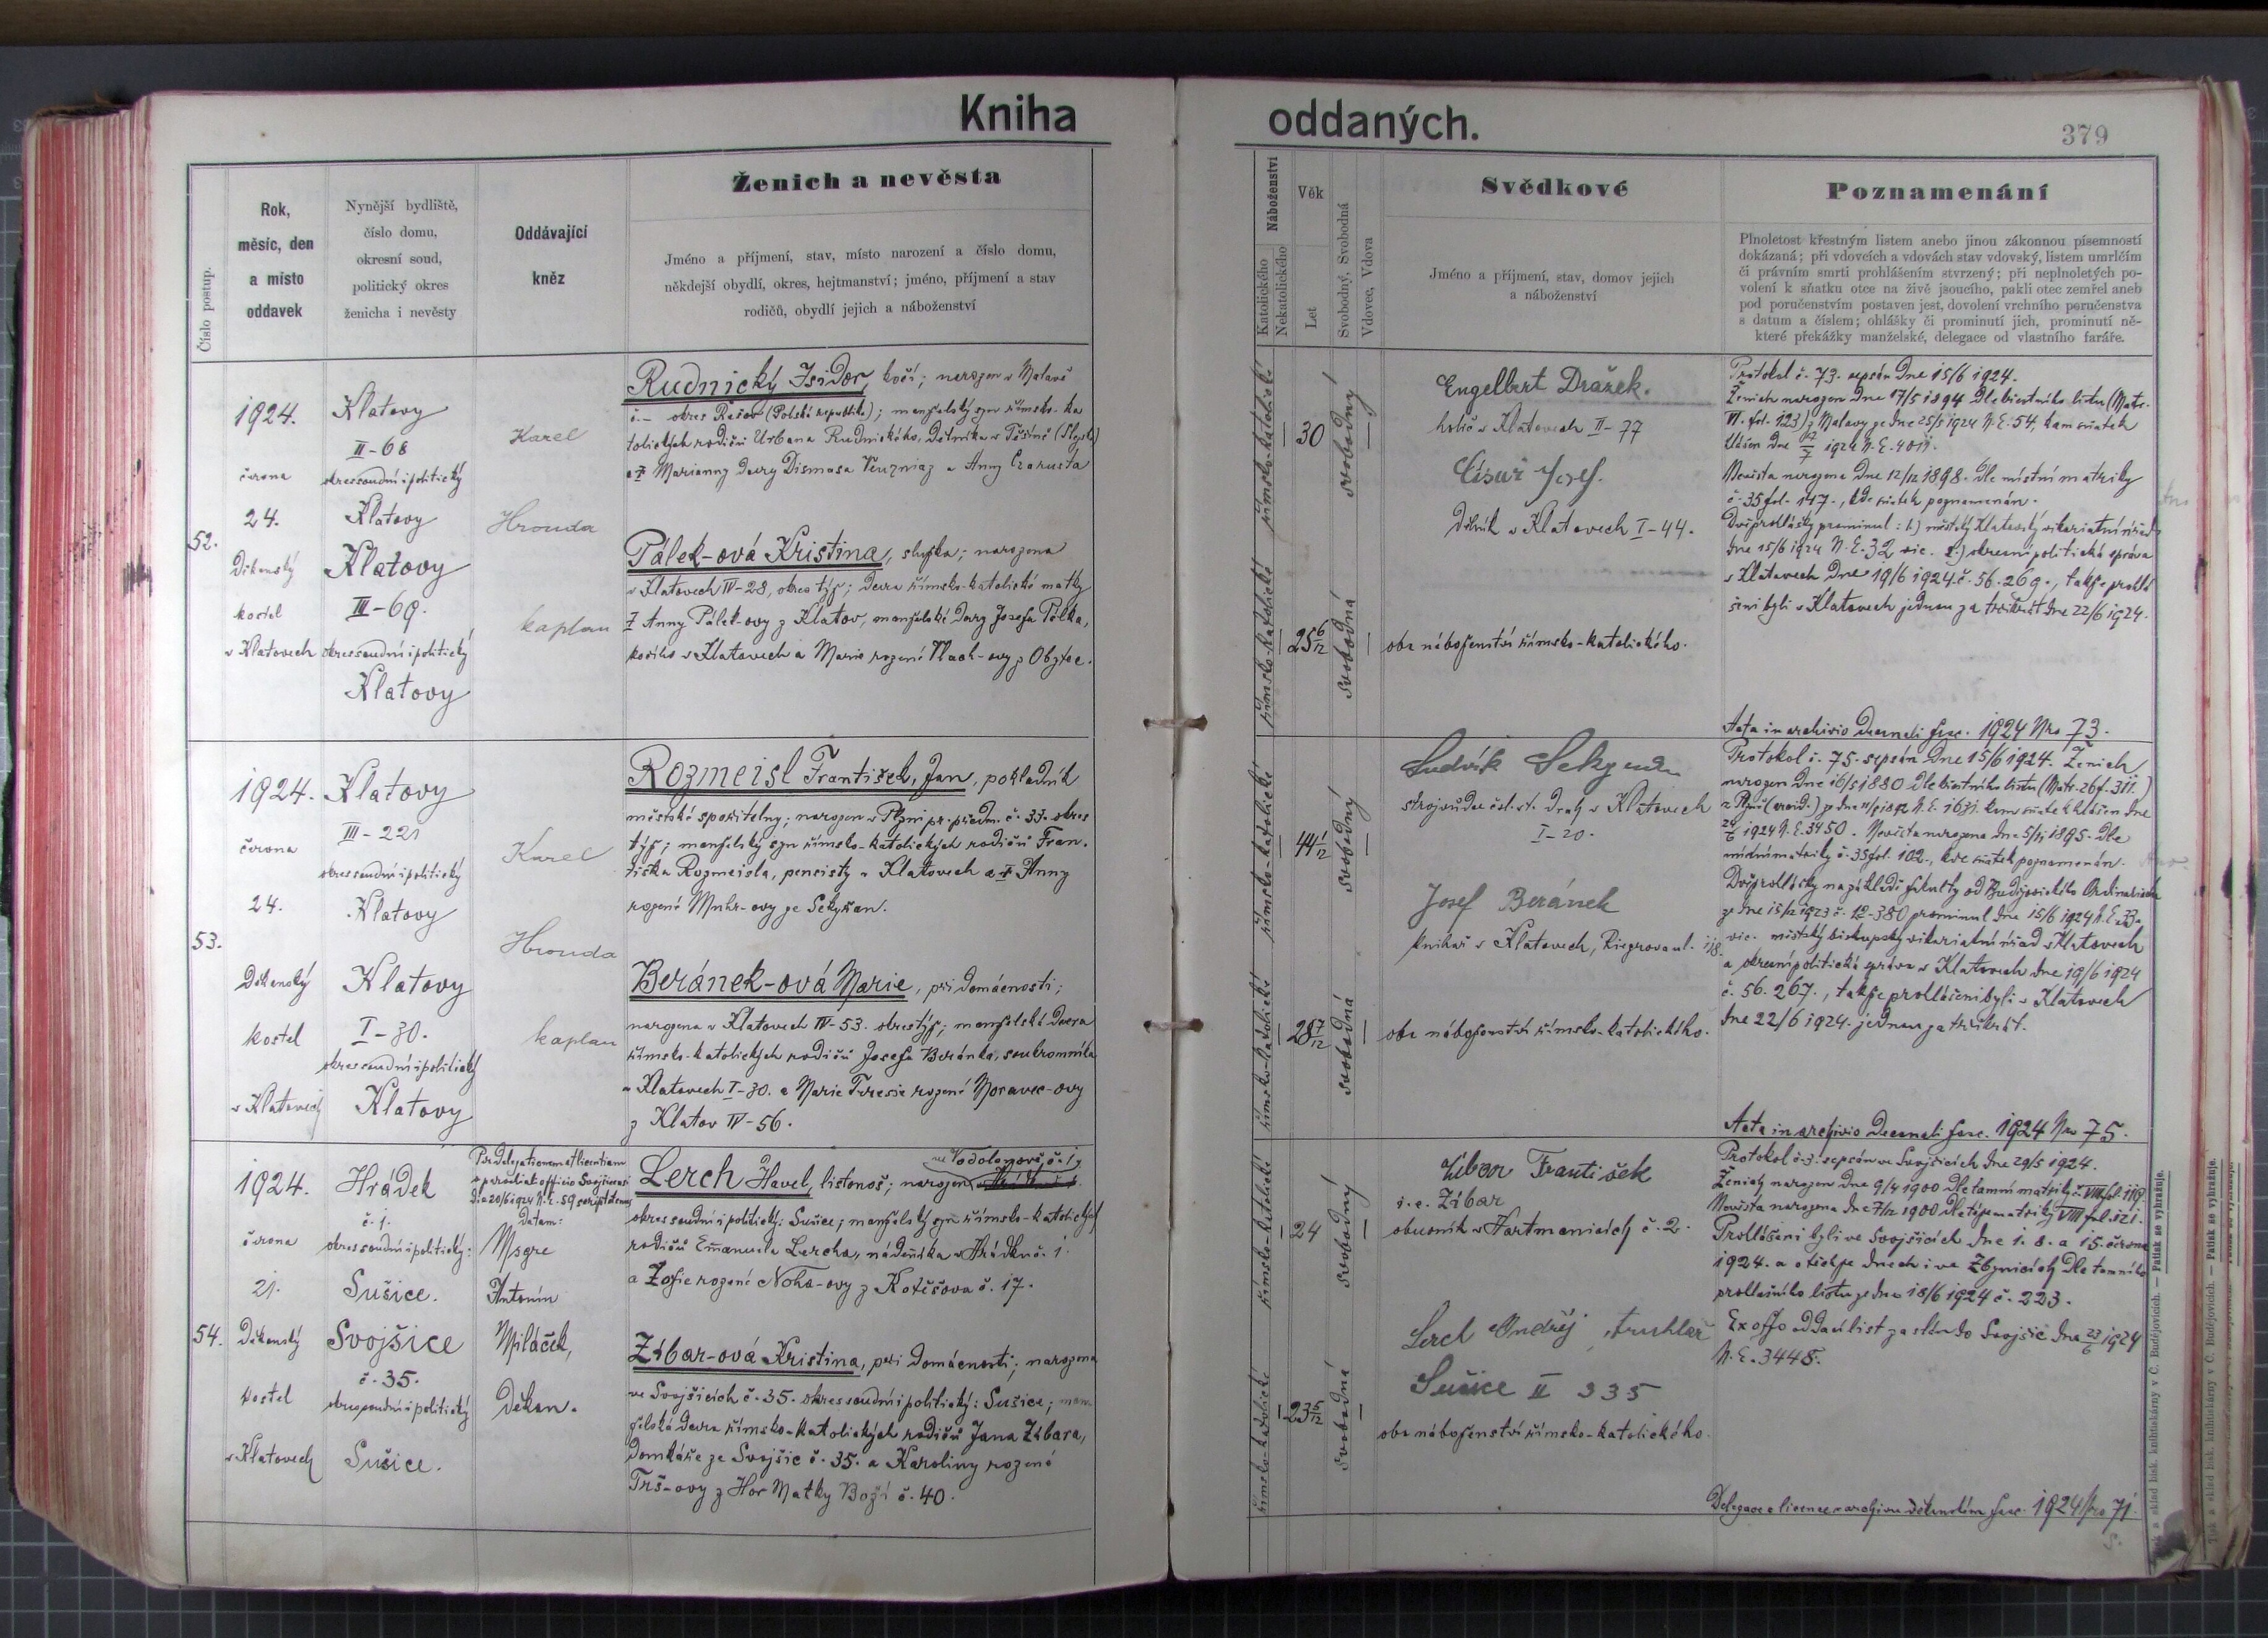 Kniha oddaných.
379
Číslo postup.
Rok, měsíc, den a místo oddavek
Nynější bydliště, číslo domu, okresní soud, politický okres ženicha i nevěsty
Oddávající kněz
Ženich a nevěsta
Jméno a příjmení, stav, místo narození a číslo domu,
někdejší obydlí, okres, hejtmanství; jméno, příjmení a stav
rodičů, obydlí jejich a náboženství
Náboženství
Katolického
Nekatolického
Věk
Let
Svobodný, Svobodná
Vdovec, Vdova
Svědkové
Jméno a příjmení, stav, domov jejich
a náboženství
Poznamenání
Plnoletost křestným listem anebo jinou zákonnou písemností
dokázaná; při vdovcích a vdovách stav vdovský, listem umrlčím
či právním smrti prohlášením stvrzený; při neplnoletých po-
volení k sňatku otce na živě jsoucího, pakli otec zemřel aneb
pod poručenstvím postaven jest, dovolení vrchního poručenstva
s datum a číslem; ohlášky či prominutí jich, prominutí ně-
které překážky manželské, delegace od vlastního faráře.
52.
1924.
června
24.
Děkanský
kostel
v Klatovech
Klatovy
II-68
okres soudní i politický
Klatovy
Klatovy
III-69.
okres soudní i politický
Klatovy
Karel
Hronda
kaplan
Rudnický Isidor, kočí; narozen v Malavě
č.- okres Řešov (Polská republika); manželský syn římsko-ka
tolických rodičů Urbana Rudnického, dělníka v Těšíně
a Marianny dcery Dismasa a Anny
Pálek-ová Kristina, služka; narozena
v Klatovech IV-28, okres týž; dcera římsko-katolické matky
Anny Pálek-ovy z Klatov, manželské dcery Josefa Pálka,
kočího v Klatovech a Marie rozené
římsko-katolické
30
svobodný
římsko-katolické
25 6/12
svobodná
Engelbert Dražek.
holič v Klatovech II-77
Císař Josef.
Dělník v Klatovech I-44.
oba náboženství římsko-katolického.
Protokol č. 73. sepsán dne 15/6 1924.
Ženich narozen dne 17/5 1894 dle křestního listu (Matr.
VI. fol. 123) z Malavy ze dne 25/5 1924 N.E. 54, kam sňatek
hlášen dne 1924 N.E. 4011.
Nevěsta narozena dne 12/12 1898. dle místní matriky
č. 35 fol. 147., kde sňatek poznamenán.
Dvě prohlášky prominul: 1.) městský Klatovský vikariátní úřad
dne 15/6 1924 N.E. 32 vic. 2.) okresní politická správa
v Klatovech dne 19/6 1924 č. 56.269., takže prohlá
šeni byli v Klatovech jednou za třikrát dne 22/6 1924.
Acta in archivio decanali fasc. 1924 Nro 73.
53.
1924.
června
24.
Děkanský
kostel
v Klatovech
Klatovy
III-221
okres soudní i politický
Klatovy
Klatovy
I-30.
okres soudní i politický
Klatovy
Karel
Hronda
kaplan
Rozmeisl František, Jan, pokladník
městské spořitelny; narozen v Plzni pr. předm. č. 33. okres
týž; manželský syn římsko-katolických rodičů Fran-
tiška Rozmeisla, pensisty v Klatovech a Anny
rozené ze Sekyřan.
Beránek-ová Marie, při domácnosti;
narozena v Klatovech IV-53. okres týž; manželská dcera
římsko-katolických rodičů Josefa Beránka, soukromníka
v Klatovech I-30. a Marie Teresie rozené Moravec-ovy
z Klatov IV-56.
římsko-katolické
44 1/12
svobodný
římsko-katolické
28 7/12
svobodná
Ludvík
strojvůdce čsl. st. drah v Klatovech
I-20.
Josef Beránek
knihař v Klatovech, Riegrova ul. 118.
oba náboženství římsko-katolického.
Protokol č. 75. sepsán dne 15/6 1924. Ženich
narozen dne 16/5 1880 dle křestního listu (Matr. 26 f. 311.)
kam sňatek hlášen dne
1924 N.E. 3450. Nevěsta narozena dne 5/11 1895. dle
místní matriky č. 35 fol. 102., kde sňatek poznamenán.
Dvě prohlášky na základě fakulty od Budějovického Ordinariátu
ze dne 15/12 1923 č. prominul dne 15/6 1924 N.E. 33.
vic. městský biskupský vikariátní úřad v Klatovech
a okresní politická správa v Klatovech dne 19/6 1924
č. 56.267., takže prohlášeni byli v Klatovech
dne 22/6 1924. jednou za třikrát.
Acta in archivio decanali fasc. 1924 Nro 75.
54.
1924.
června
21.
Děkanský
kostel
v Klatovech
Hrádek
č. 1.
okres soudní i politický:
Sušice.
Svojšice
č. 35.
okres soudní i politický
Sušice.
Per delegationem et licentiam
a parochiali officio Svojšicensi
die 20/6 1924 N.E. 59
datam:
Msgre
Antonín
Miláček,
Děkan.
ve Vodolenově č. 1
Lerch Havel, listonoš; narozen
okres soudní i politický: Sušice; manželský syn římsko-katolických
rodičů Emanuela Lercha, nádeníka v Hrádku č. 1.
a Žofie rozené Noha-ovy z Kotěšova č. 17.
Zíbar-ová Kristina, při domácnosti; narozena
ve Svojšicích č. 35. okres soudní i politický: Sušice; man-
želská dcera římsko-katolických rodičů Jana Zíbara,
domkáře ze Svojšic č. 35. a Karoliny rozené
Trš-ovy z Hor Matky Boží č. 40.
římsko-katolické
24
svobodný
římsko-katolické
23 5/12
svobodná
Zíbar František
i.e. Zíbar
obuvník v Hartmanicích č. 2.
Lerch Ondřej, truhlář
Sušice II 335
oba náboženství římsko-katolického.
Protokol č. 3. sepsán ve Svojšicích dne 29/5 1924.
Ženich narozen dne 9/4 1900 dle tamní matriky č. VIII fol. 119.
Nevěsta narozena dne 7/12 1900 dle téže matriky VIII fol. 121.
Prohlášeni byli ve Svojšicích dne 1. 8. a 15. června
1924. a v týchže dnech i ve Zbynicích dle tamního
prohlašního listu ze dne 18/6 1924 č. 223.
Ex offo oddací list zaslán do Svojšic dne 23/6 1924
N.E. 3448.
Delegace a licence v archivu děkanském fasc. 1924 Nro 71.
sklad bisk. knihtiskárny v Č. Budějovicích. — Patisk se vyhražuje.